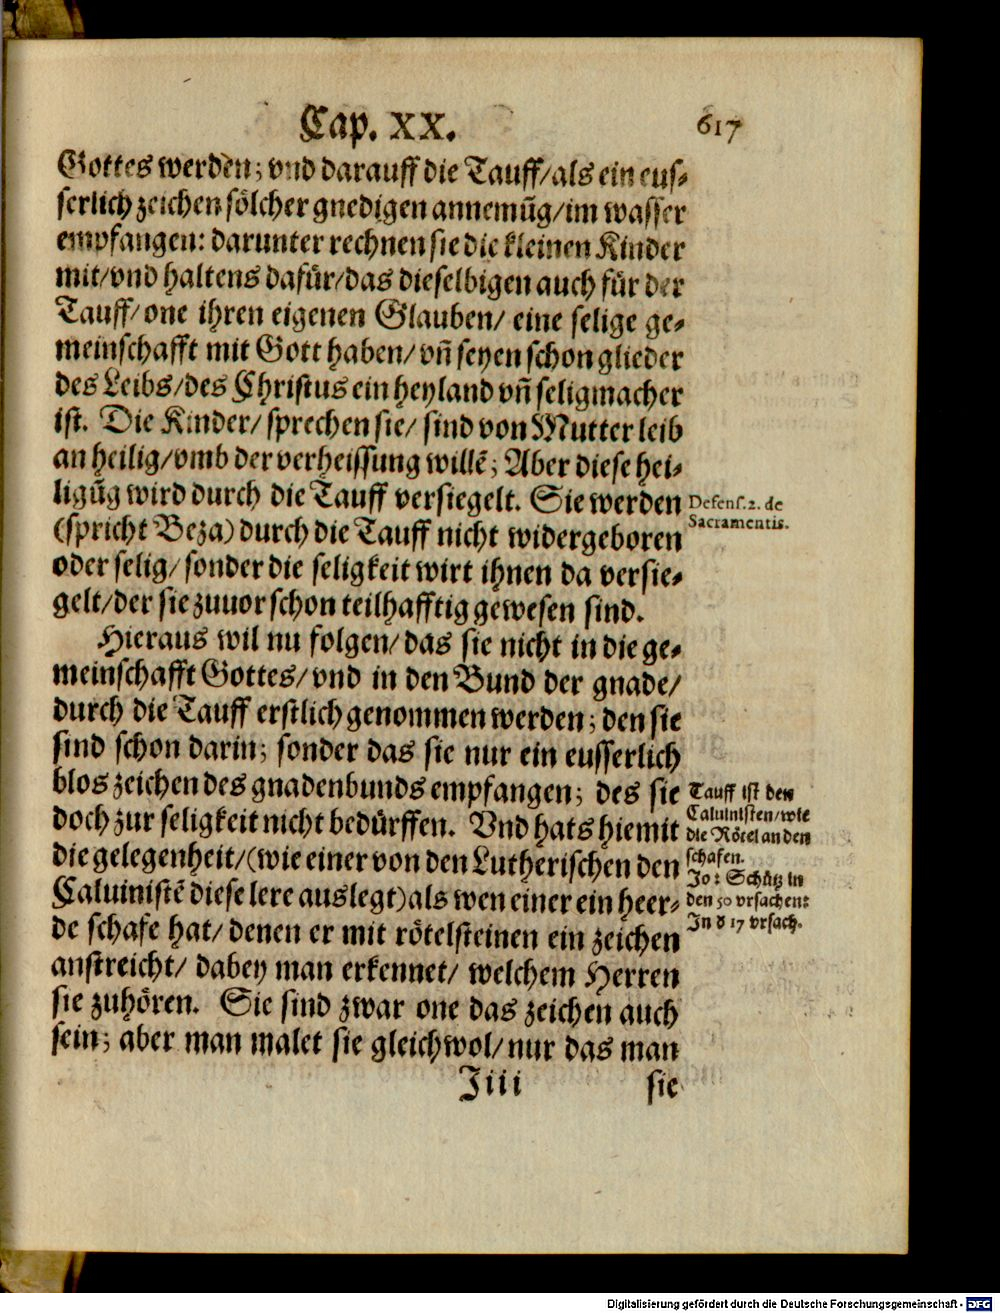 Cap. XX.
617
Gottes werden; vnd darauff die Tauff/als ein eus⸗
serlich zeichen sölcher gnedigen annemūg/im wasser
empfangen: darunter rechnen sie die kleinen Kinder
mit/vnd haltens dafür/das dieselbigen auch für der
Tauff/one ihren eigenen Glauben/ eine selige ge⸗
meinschafft mit Gott haben/ vn̄ seyen schon glieder
des Leibs/des Christus ein heyland vn̄ seligmacher
ist. Die Kinder/ sprechen sie/ sind von Mutter leib
an heilig/vmb der verheissung willē; Aber diese hei⸗
ligūg wird durch die Tauff versiegelt. Sie werden
(spricht Beza) durch die Tauff nicht widergeboren
oder selig/ sonder die seligkeit wirt ihnen da versie⸗
gelt/der sie zuuor schon teilhafftig gewesen sind.
Hieraus wil nu folgen/das sie nicht in die ge⸗
meinschafft Gottes/vnd in den Bund der gnade/
durch die Tauff erstlich genommen werden; den sie
sind schon darin; sonder das sie nur ein eusserlich
blos zeichen des gnadenbunds empfangen; des sie
doch zur seligkeit nicht bedürffen. Vnd hats hiemit
die gelegenheit/(wie einer von den Lutherischen den
Caluinistē diese lere auslegt)als wen einer ein heer⸗
de schafe hat/ denen er mit rötelsteinen ein zeichen
anstreicht/ dabey man erkennet/ welchem Herren
sie zuhören. Sie sind zwar one das zeichen auch
sein; aber man malet sie gleichwol/nur das man
Jiii
sie
Defens. 2. de
Sacramentis.
Tauff ist den
Caluinisten/wie
die Rötel an den
schafen.
Jo: Schütz in
den 50 vrsachen:
In d 17 vrsach.
Digitalisierung gefördert durch die Deutsche Forschungsgemeinschaft - DFG